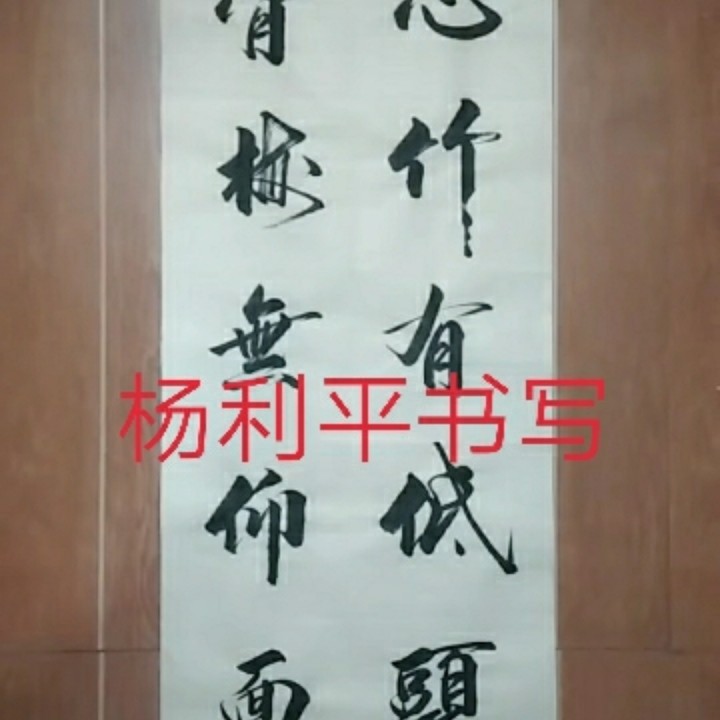 心竹有低頭
骨梅無仰面
杨利平书写